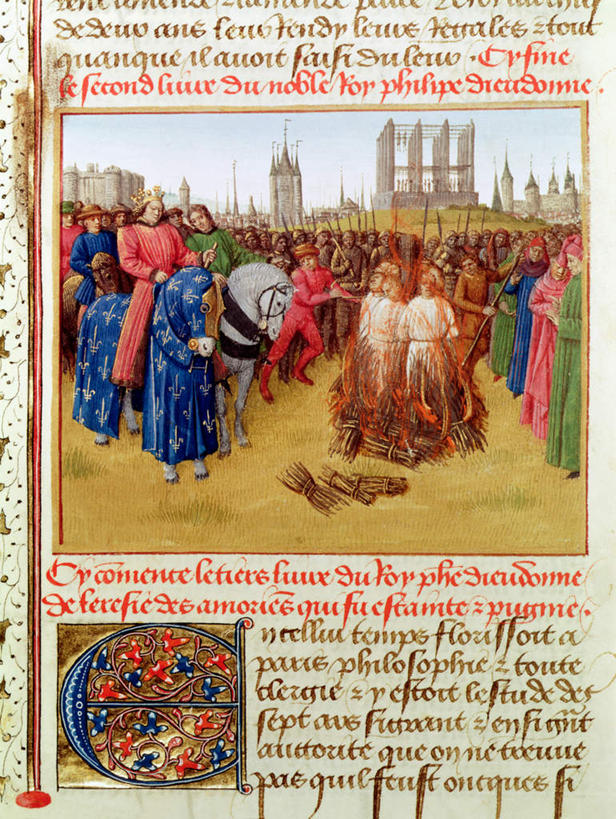 de deux ans leur Rendy leurs Regales & tout
quanque il avoit saisi du leur · Cy fine
le second livre du noble Roy philipe dieudonne .
Cy cōmente le tiers livre du Roy phē dieudonne
de leresie des amoriēs qui fu estainte & pugnie .
En cellui temps florissoit a
paris philosophie & toute
clergie & y estoit lestude des
sept ars si grant & en si grāt
auttorite que on ne treuve
pas quil feust oncques si